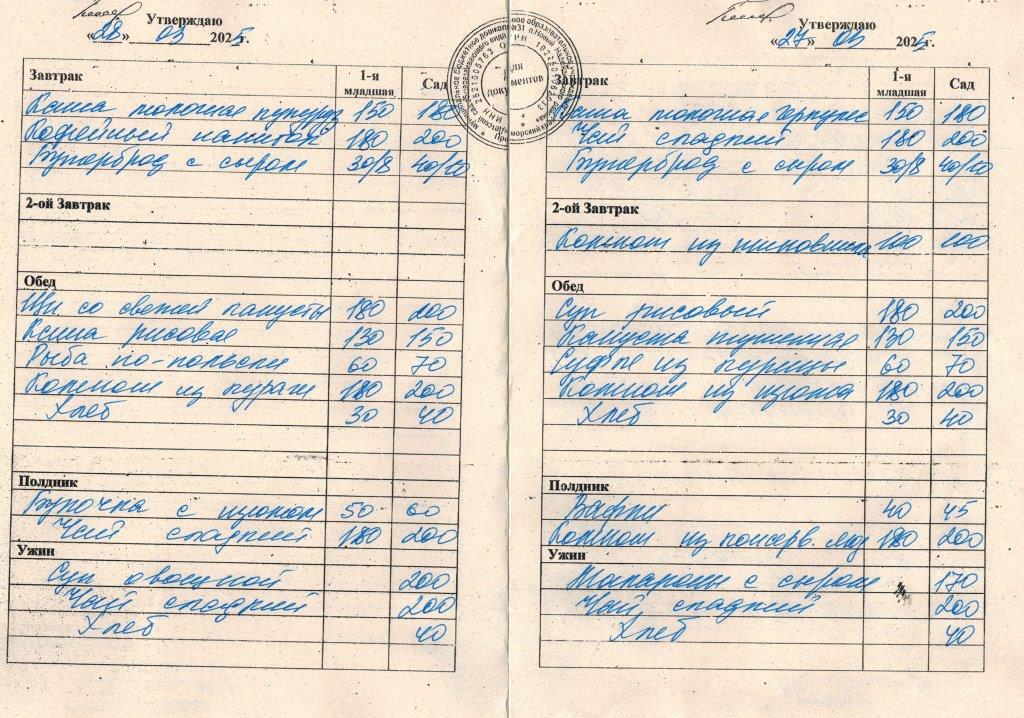 Утверждаю
«28» 03 2025г.
Завтрак 1-я младшая Сад
Каша молочная кукуруз 150 180
Кофейный напиток 180 200
Бутерброд с сыром 30/8 40/10
2-ой Завтрак
Обед
Щи со свежей капусты 180 200
Каша рисовая 130 150
Рыба по-польски 60 70
Компот из кураги 180 200
Хлеб 30 40
Полдник
Булочка с изюмом 50 60
Чай сладкий 180 200
Ужин
Суп овощной 200
Чай сладкий 200
Хлеб 40
Утверждаю
«27» 03 2025г.
Завтрак 1-я младшая Сад
Каша молочная 150 180
Чай сладкий 180 200
Бутерброд с сыром 30/8 40/10
2-ой Завтрак
Компот из шиповника 100 100
Обед
Суп рисовый 180 200
Капуста тушеная 130 150
Суфле из курицы 60 70
Компот из изюма 180 200
Хлеб 30 40
Полдник
Вафли 40 45
Компот из консерв. яг 180 200
Ужин
Макароны с сыром 170
Чай сладкий 200
Хлеб 40